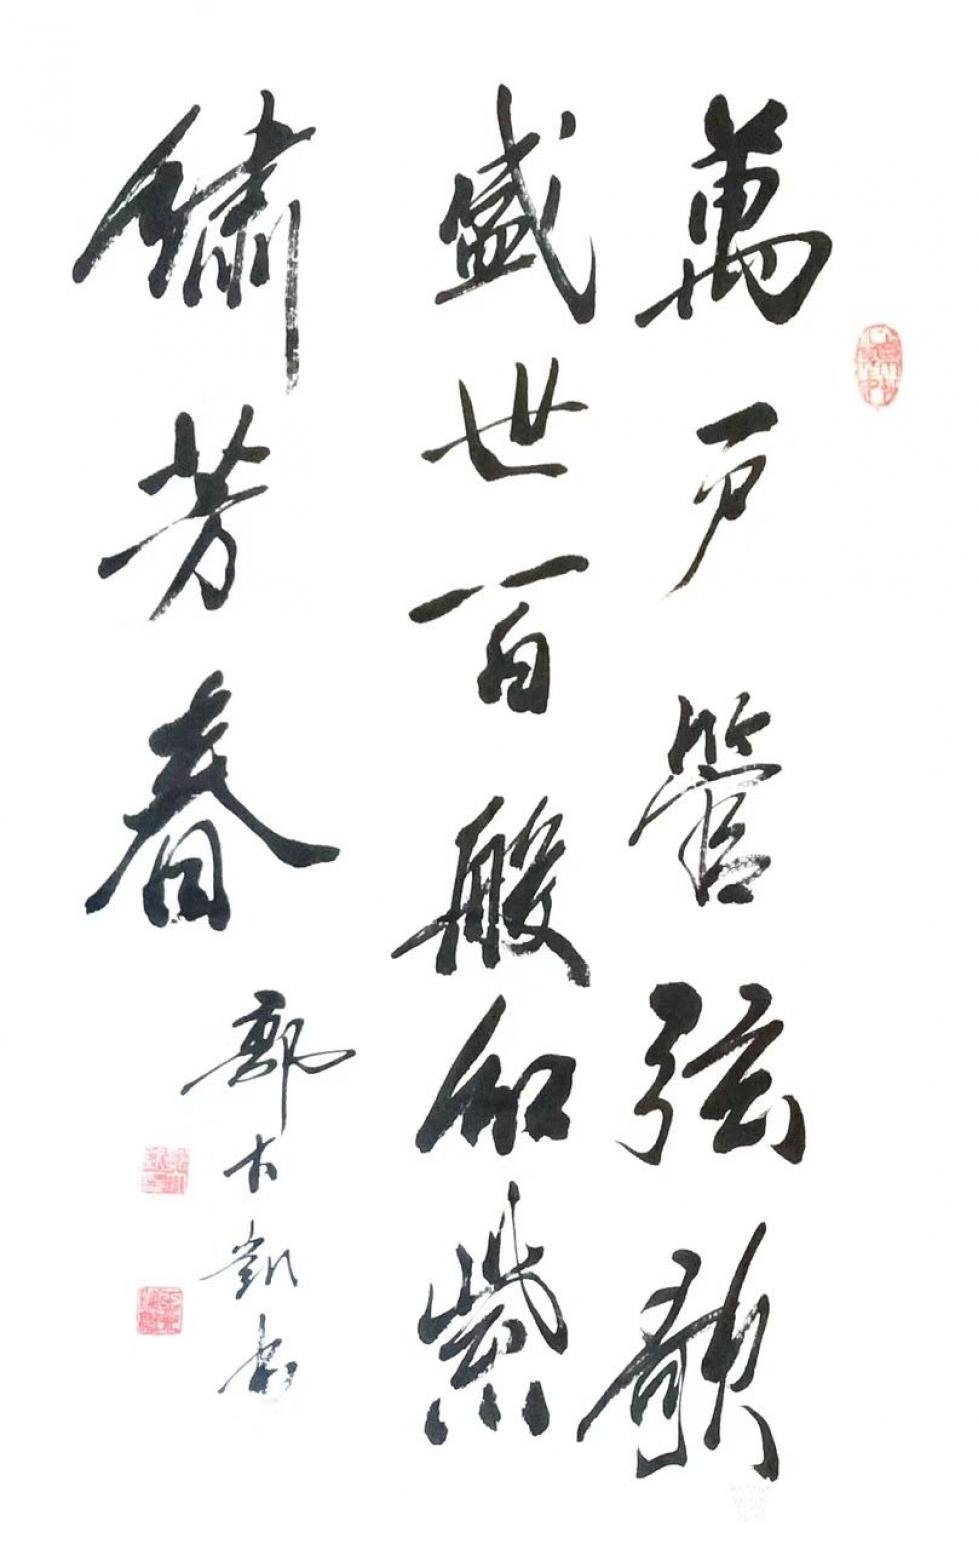 萬戶管弦歌
盛世百般紅紫
繡芳春
郭大凱書